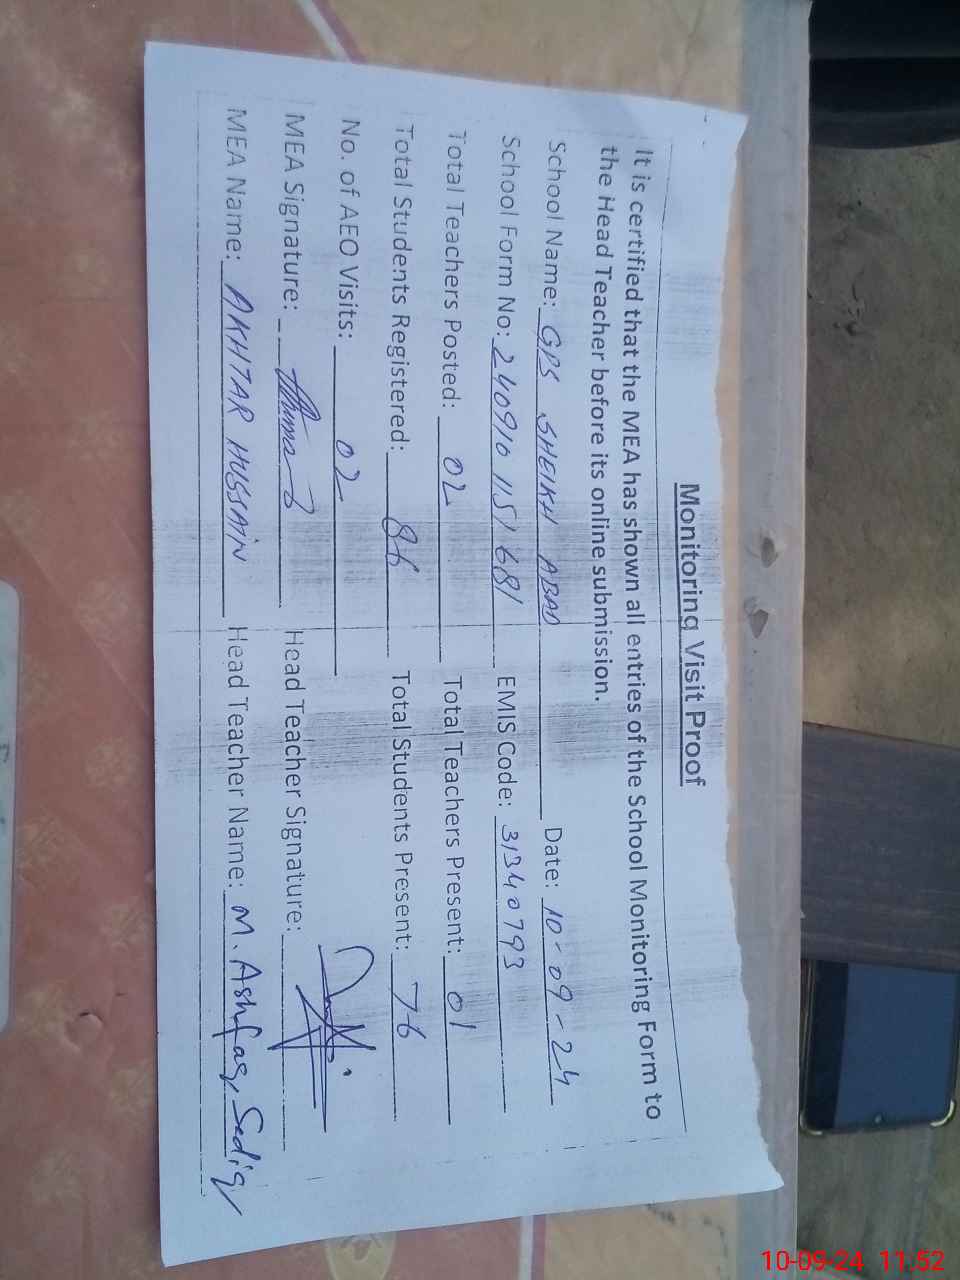 Monitoring Visit Proof
It is certified that the MEA has shown all entries of the School Monitoring Form to
the Head Teacher before its online submission.
School Name: GPS SHEIKH ABAD Date: 10-09-24
School Form No: 240910 1151681 EMIS Code: 31340793
Total Teachers Posted: 02 Total Teachers Present: 01
Total Students Registered: 86 Total Students Present: 76
No. of AEO Visits: 02
MEA Signature: Head Teacher Signature:
MEA Name: AKHTAR HUSSAIN Head Teacher Name: M. Ashfaq Sediq
10-09-24 11:52